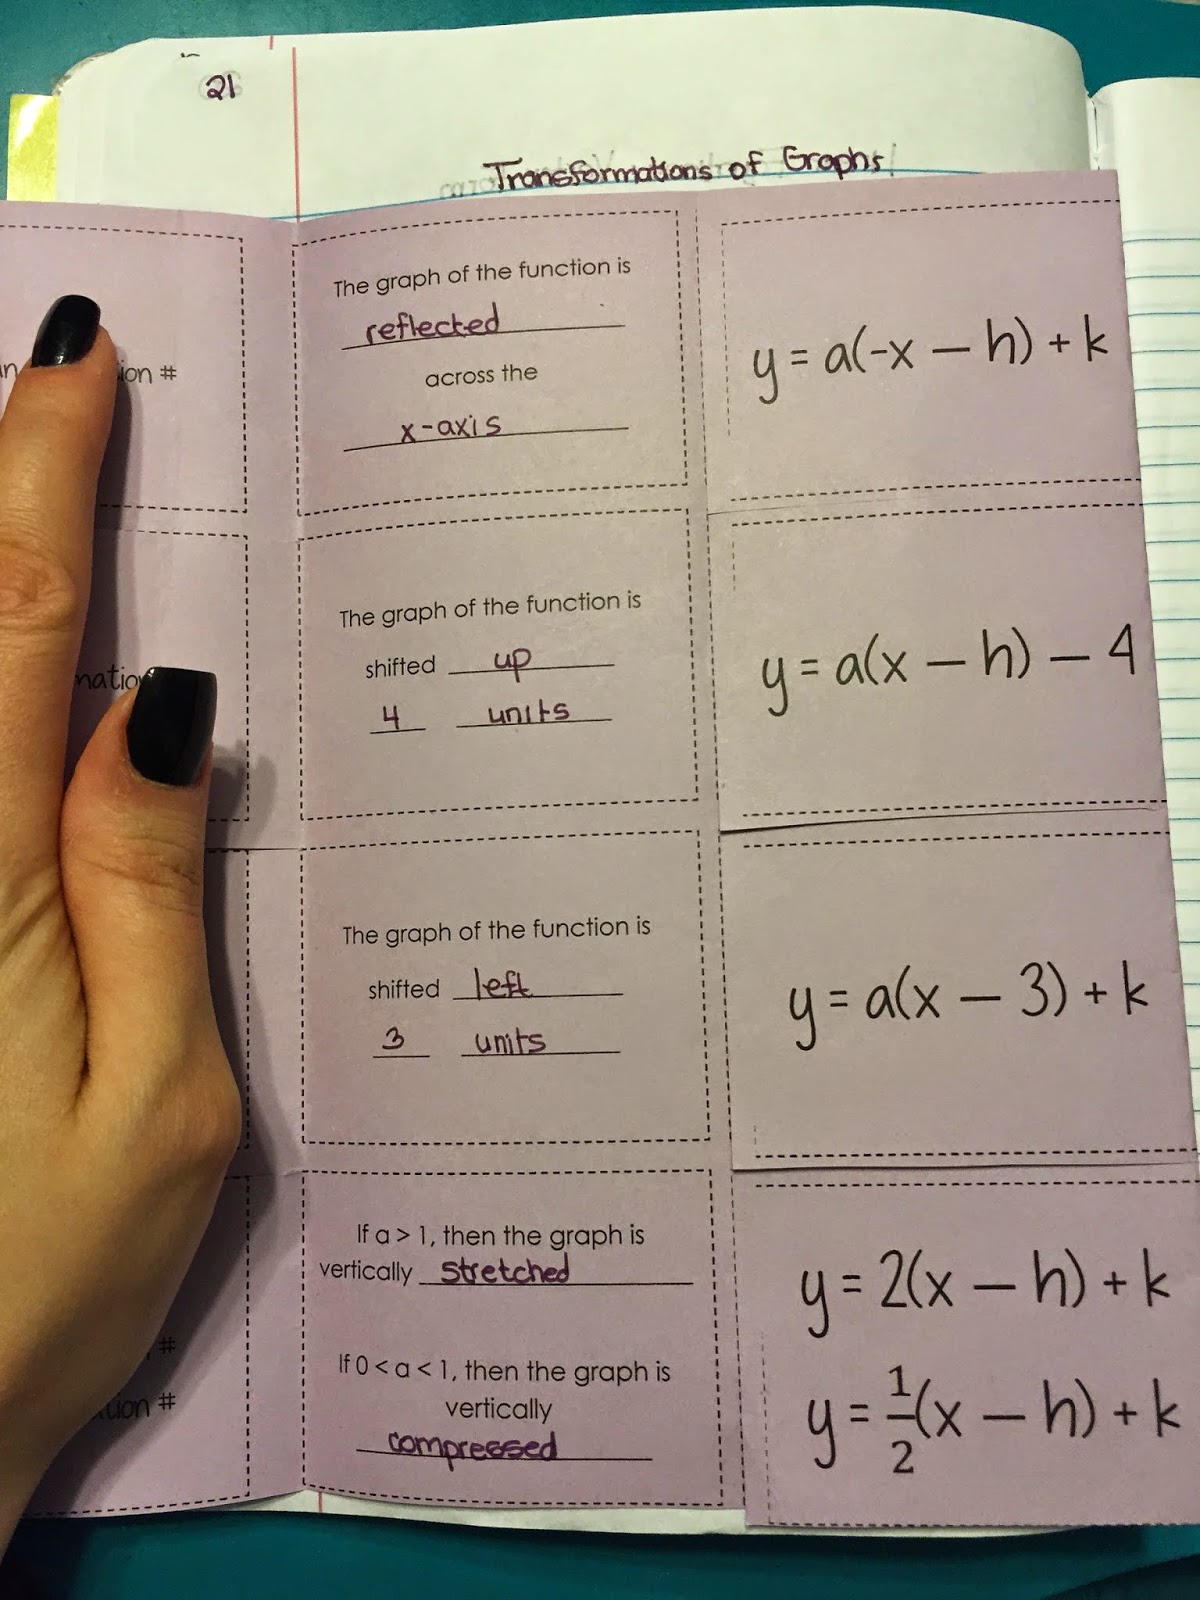 21
Transformations of Graphs
ion #
The graph of the function is
reflected
across the
x-axis
y = a(-x — h) + k
The graph of the function is
shifted up
4 units
y = a(x — h) — 4
The graph of the function is
shifted left
3 units
y = a(x — 3) + k
If a > 1, then the graph is
vertically stretched
If 0 < a < 1, then the graph is
vertically
compressed
#
tion #
y = 2(x — h) + k
y = 1/2(x — h) + k